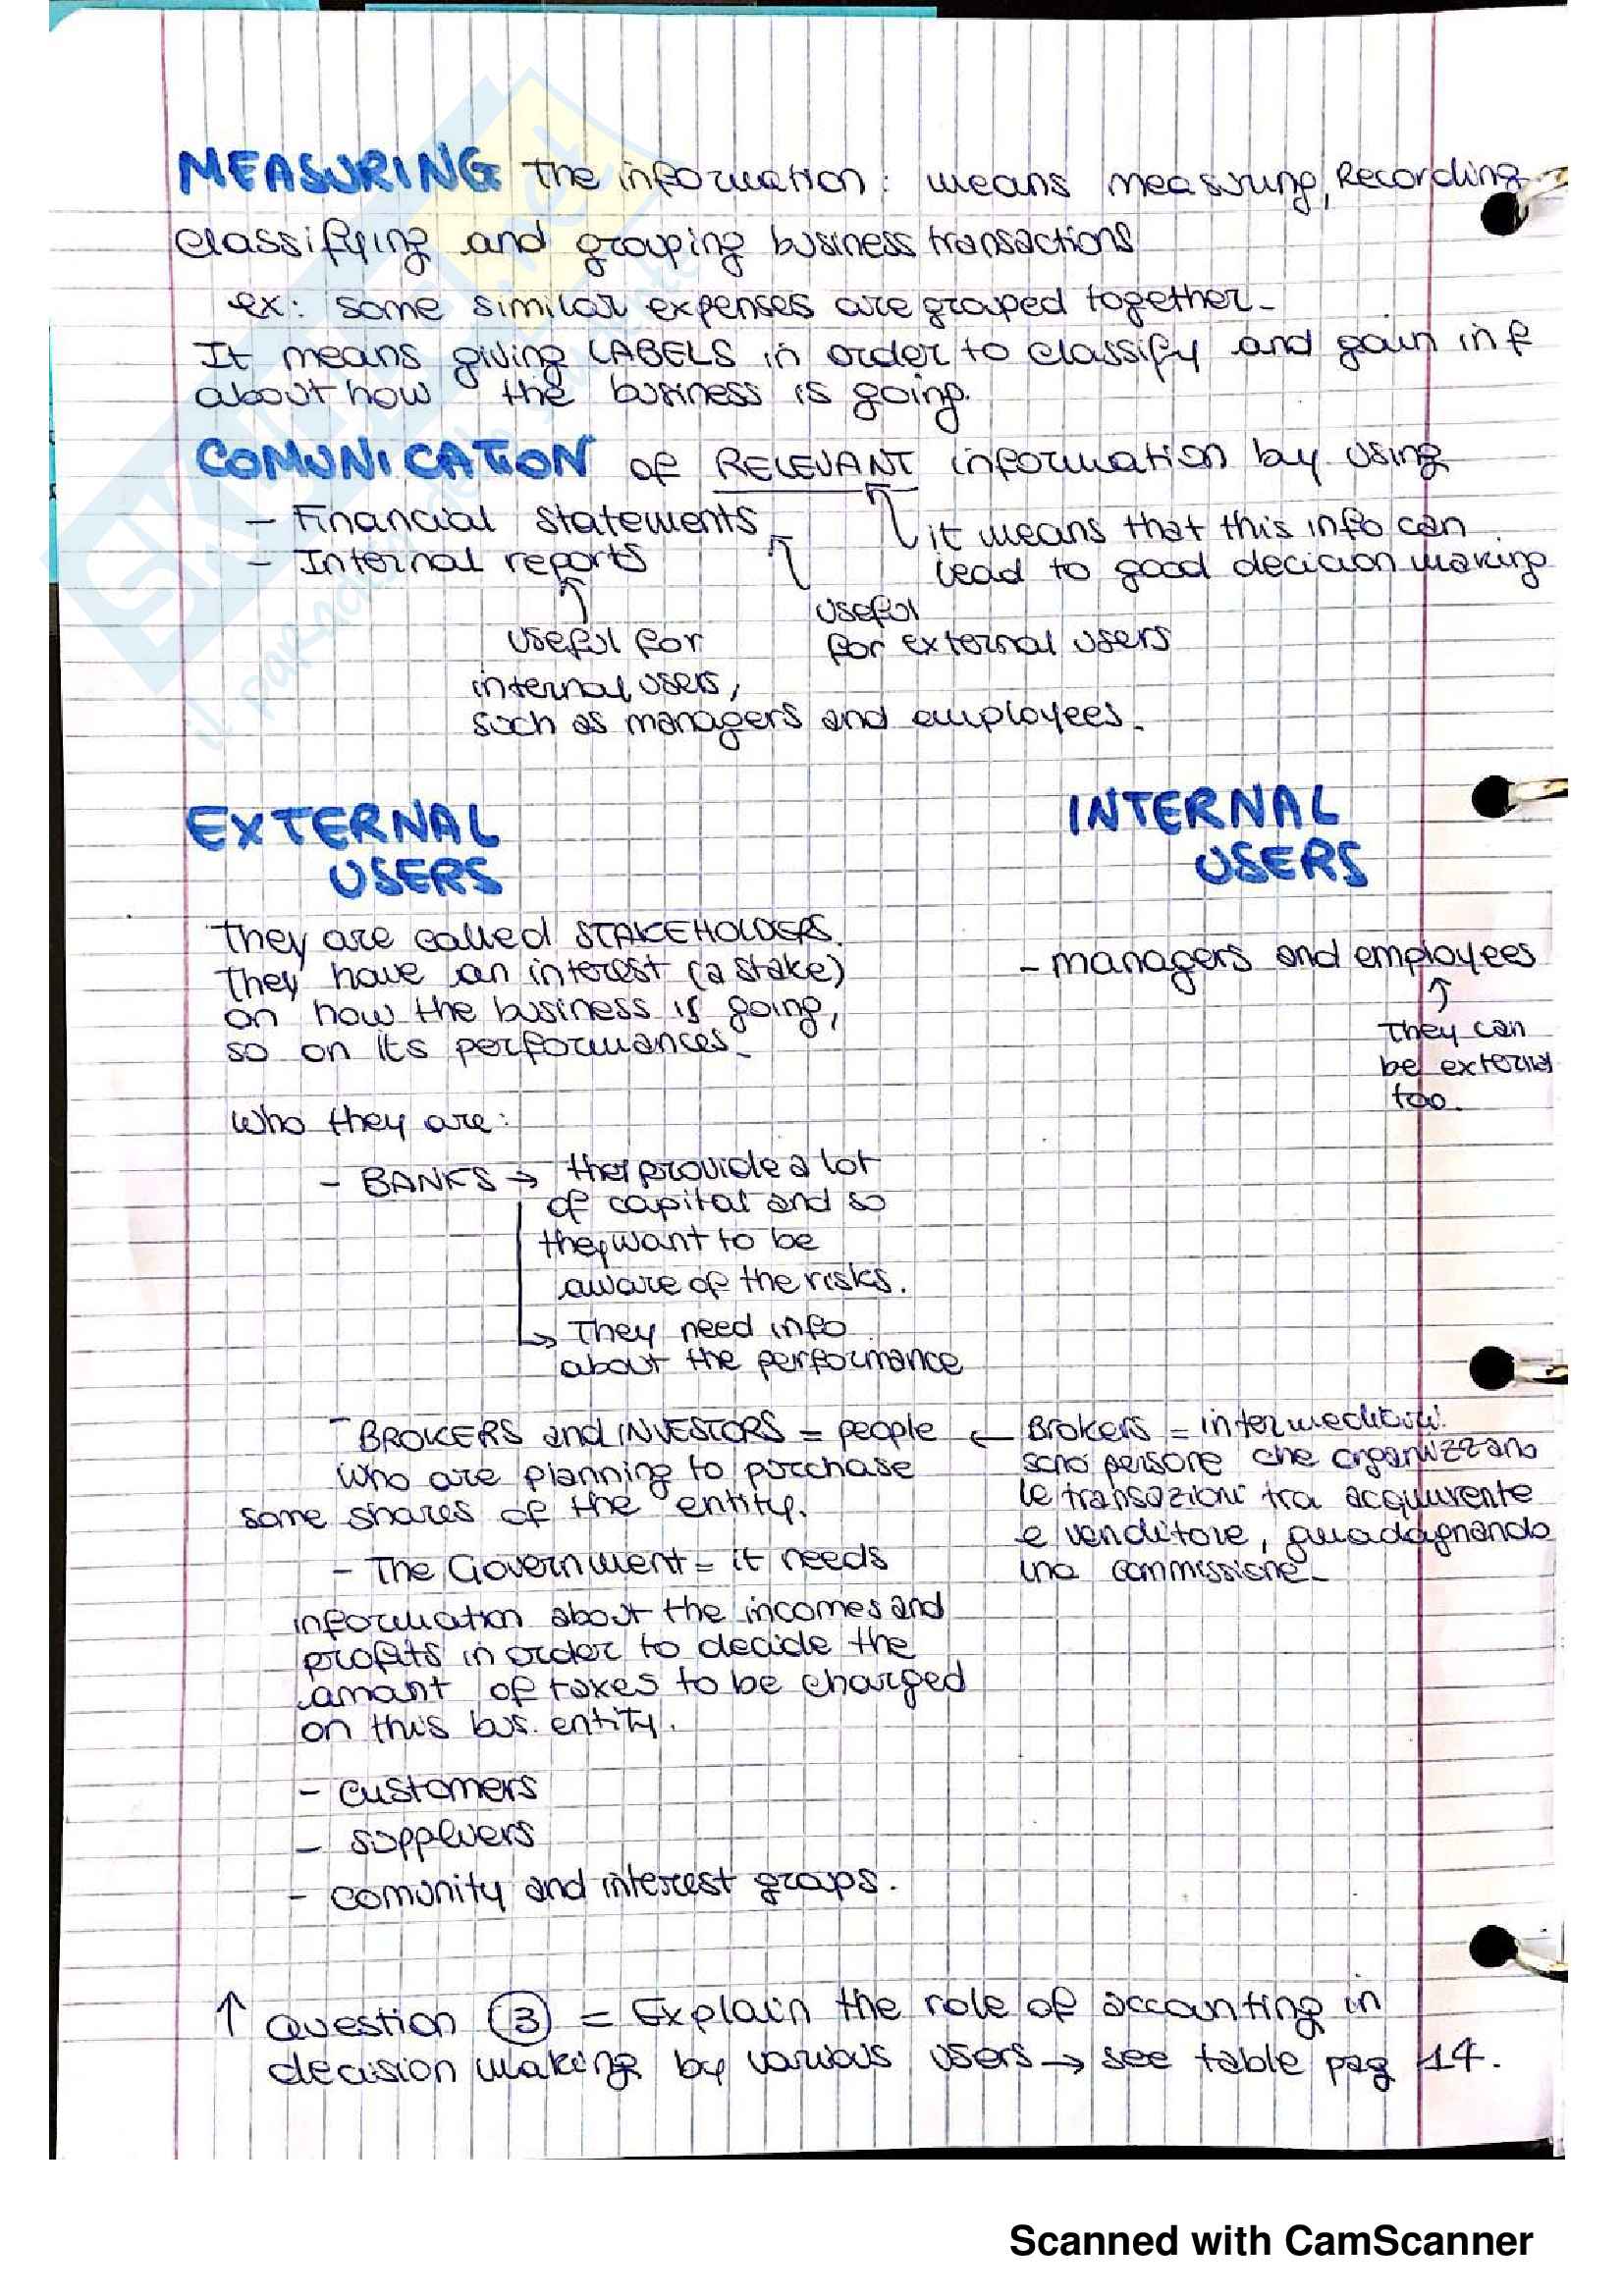 MEASURING the information: means measuring, Recording
classifying and grouping business transactions
ex: some similar expenses are grouped together_
It means giving LABELS in order to classify and gain inf
about how the business is going.
COMUNICATION of RELEVANT information by using
- Financial statements
- Internal reports
it means that this info can
lead to good decicion making
useful
for external users
useful for
internal users,
such as managers and employees_
EXTERNAL
USERS
They are called STAKEHOLDERS.
They have an interest (a stake)
on how the business is going,
so on its performances_
Who they are:
- BANKS → they provide a lot
of capital and so
they want to be
aware of the risks.
↳ They need info
about the performance
- BROKERS and INVESTORS = people
who are planning to purchase
some shares of the entity.
- The Government = it needs
information about the incomes and
profits in order to decide the
amant of taxes to be charged
on this bus. entity.
- customers
- suppliers
- comunity and interest groups.
INTERNAL
USERS
- managers and employees
↑
They can
be external
too.
← Brokers = intermediari
sono persone che organizzano
le transazioni tra acquirente
e venditore, guadagnando
una commissione_
↑ Question ③ = Explain the role of accounting in
decision making by various users → see table pag 14.
SKUOLA.net
il paradiso dello studente
Scanned with CamScanner